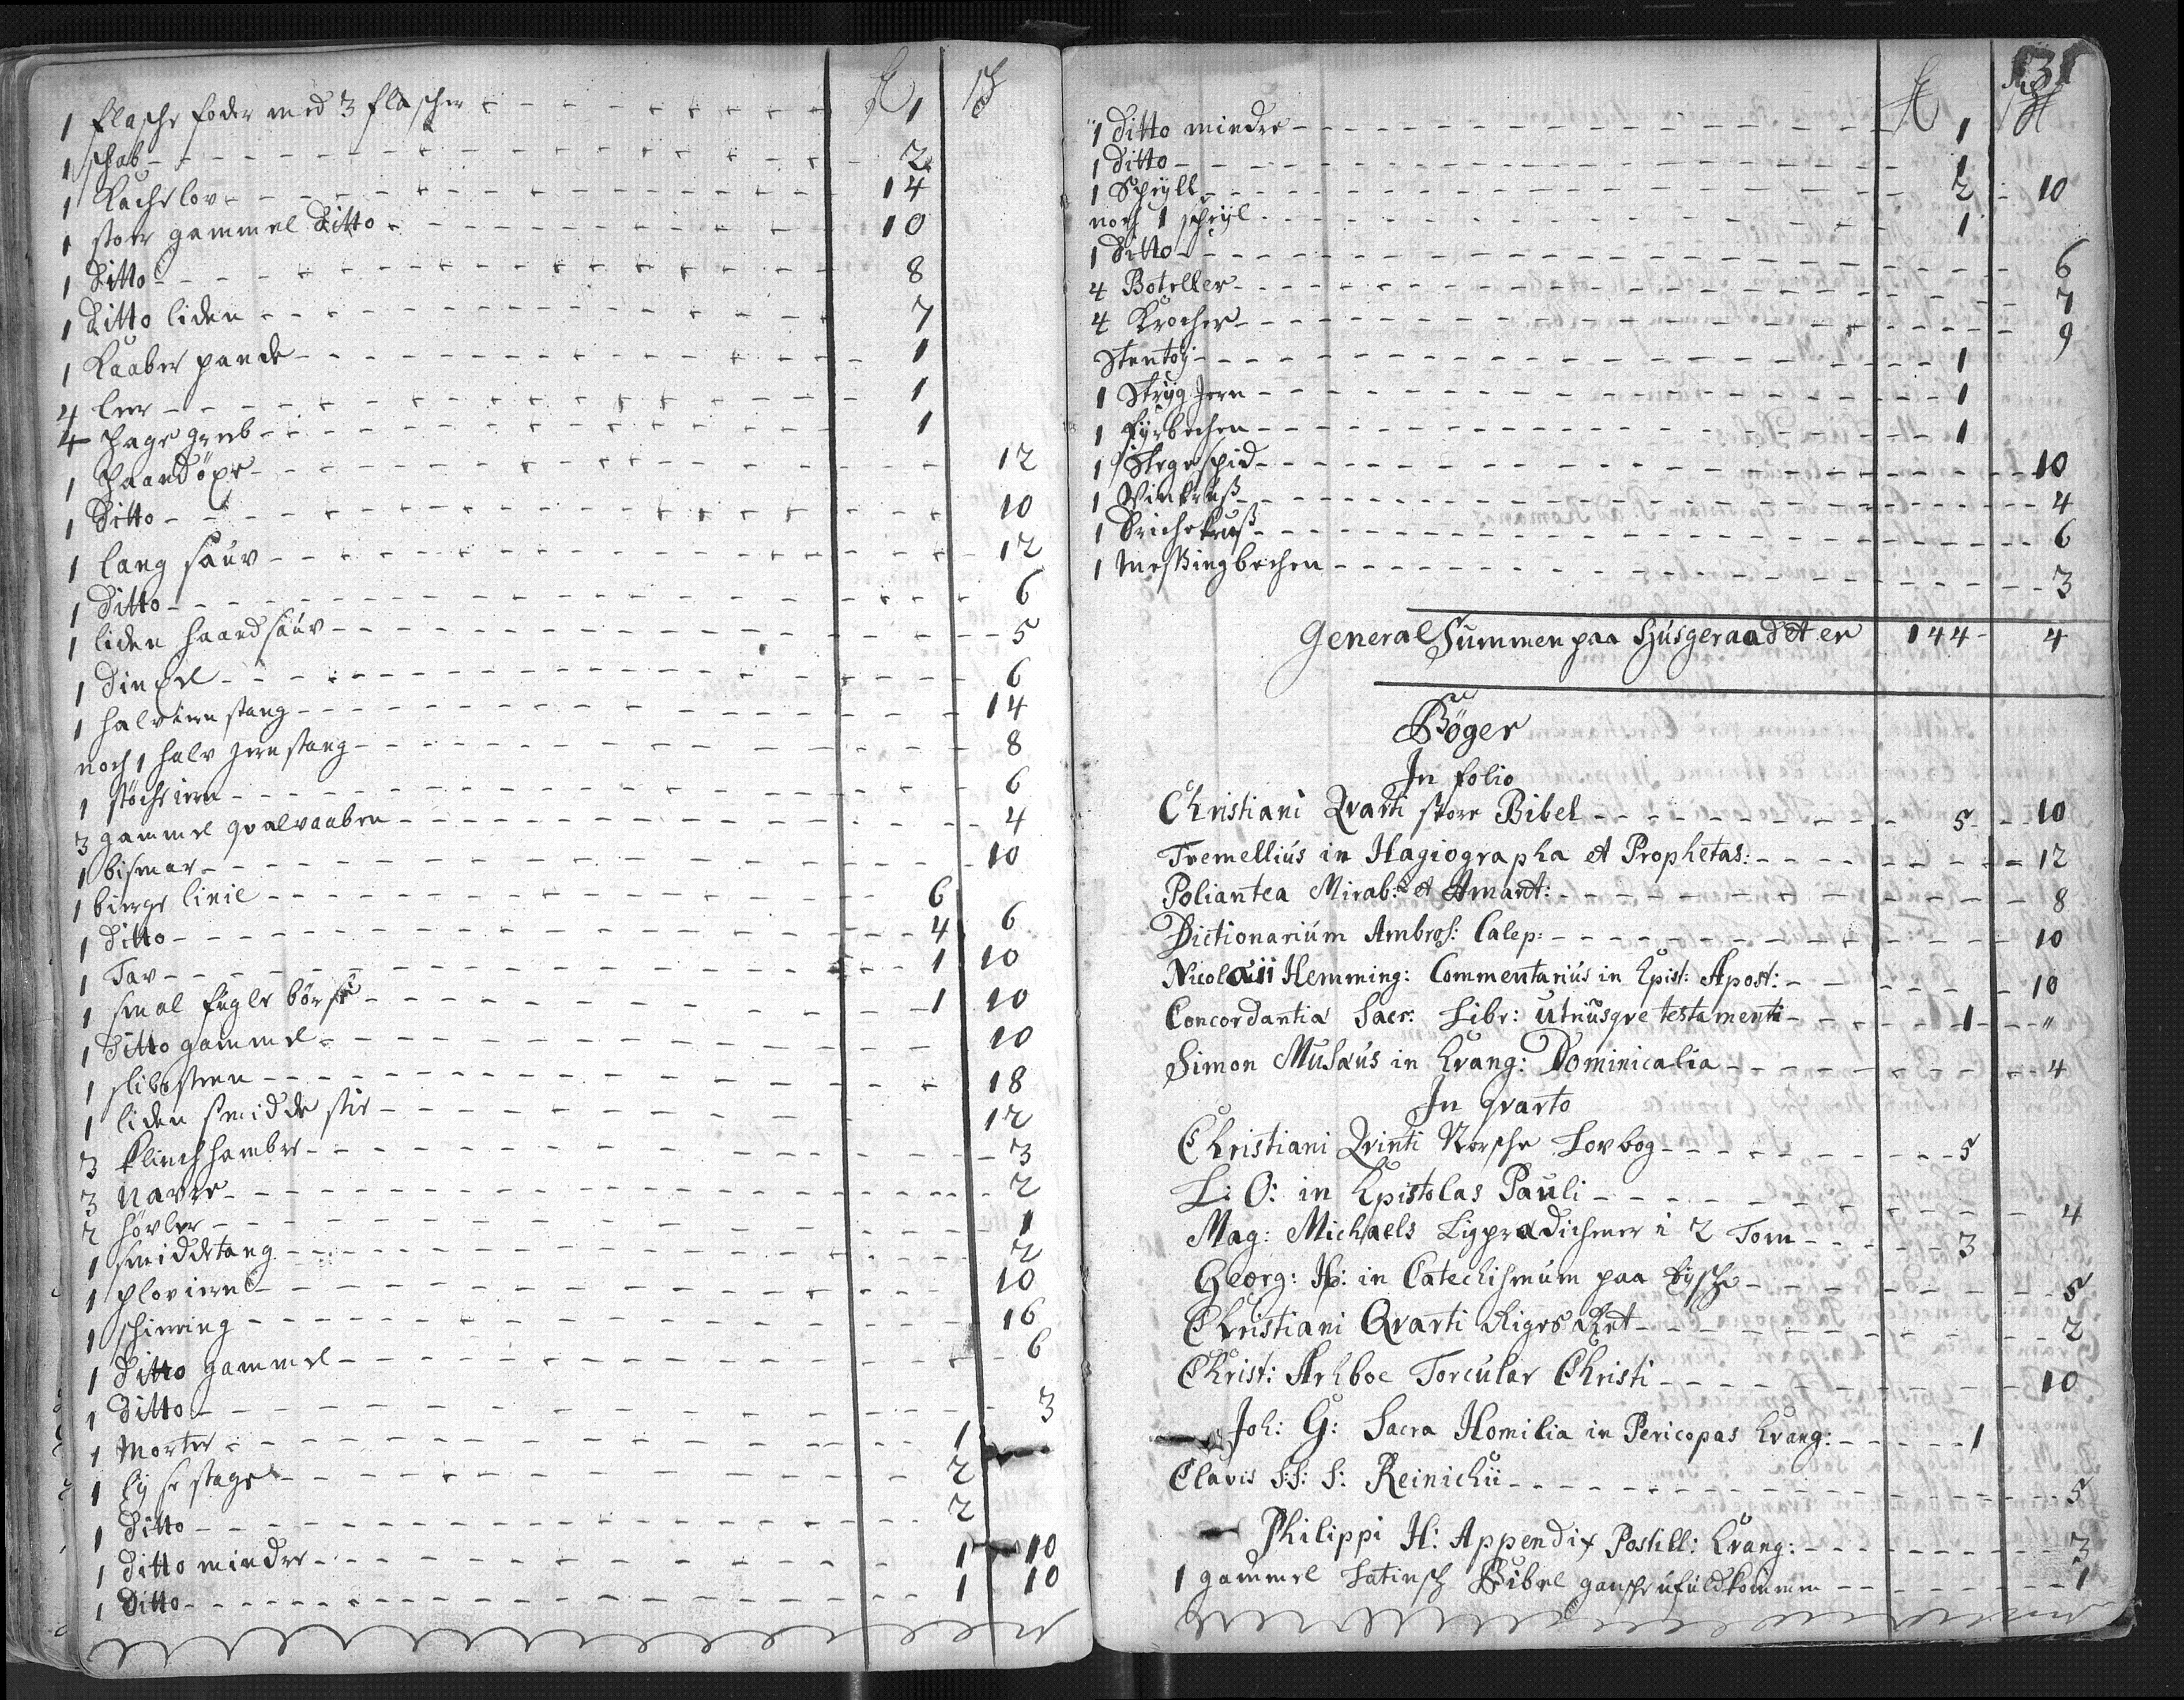 1 flasche foder med 3 flascher 1
1 schab 2
1 Kachelov 14
1 stoer gammel Ditto 10
1 Ditto 8
1 Ditto liden 7
1 Kaaber pande 1
4 leer 1
4 hage greb 1
1 haandöxe 12
1 Ditto 10
1 lang sauv 12
1 Ditto 6
1 liden haandsauv 5
1 6
1 halv iern stang 14
noch 1 halv jern stang 8
1 iern 6
3 gammel 4
1 bismar 10
1 linie 6
1 Ditto 4 6
1 Tav 1 10
1 smal fugle börse 1 10
1 Ditto gammel 10
1 slibesteen 18
1 liden smidde 12
3 klinchhamber 3
3 Navre 2
2 hövler 1
1 smiddetang 2
1 ploviern 10
1 16
1 Ditto gammel 6
1 Ditto 3
1 Morter 1
1 lyse stage 2
1 Ditto 2
1 Ditto mindre 1 10
1 Ditto 1 10
131
1 Ditto mindre 1
1 Ditto 1
1 Speyll 2 10
noch 1 speyl 1
1 Ditto 6
4 Boteller 7
4 Krocher 9
Stentöy 1
1 Stryg Jern 1
1 fyrbechen 1
1 Stege spid 10
1 Vinkruß 4
1 Drichekruß 6
1 Meßingbechen 3
General Summen paa Husgeraadet er 144 4
Böger
In folio
Christiani Qvarti store Bibel 5 10
Tremellius in Hagiographa et Prophetas: 12
Poliantea Mirab: et Amant: 8
Dictionarium Ambros: Calep: 10
Nicolaii Hemming: Commentarius in Epist: Apost: 10
Concordantiæ Sacr: Libr: utriusqve testamenti 1 "
Simon Musæus in Evang: Dominicalia 4
In qvarto
Christiani Qvinti Norsche Lovbog 5
L: O: in Epistolas Pauli 4
Mag: Michaels Ligprædichener i 2 Tom 3
Georg: in Catechismum paa tysche 5
Christiani Qvarti Riges Ret 2
Christ: Arhboe Torcular Christi 10
Joh: G: Sacra Homilia in Pericopas Evang: 1
Clavis S: S: S: Reinichii 5
Philippi H: Appendix Postill: Evang: 3
1 gammel Latinsch Bibel gansche ufuldkommen 1